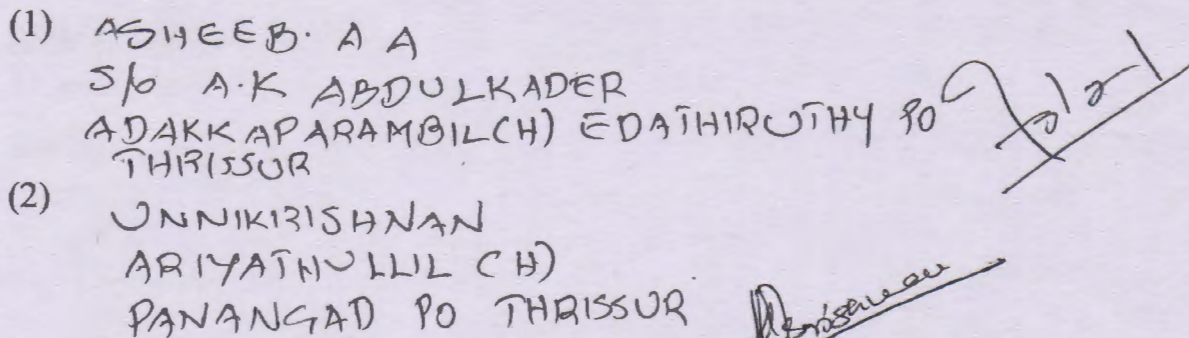 (1) ASHEEB. A A
S/o A.K ABDULKADER
ADAKKAPARAMBIL(H) EDATHIRUTHY PO
THRISSUR
(2)
UNNIKRISHNAN
ARIYATHULLIL (H)
PANANGAD PO THRISSUR